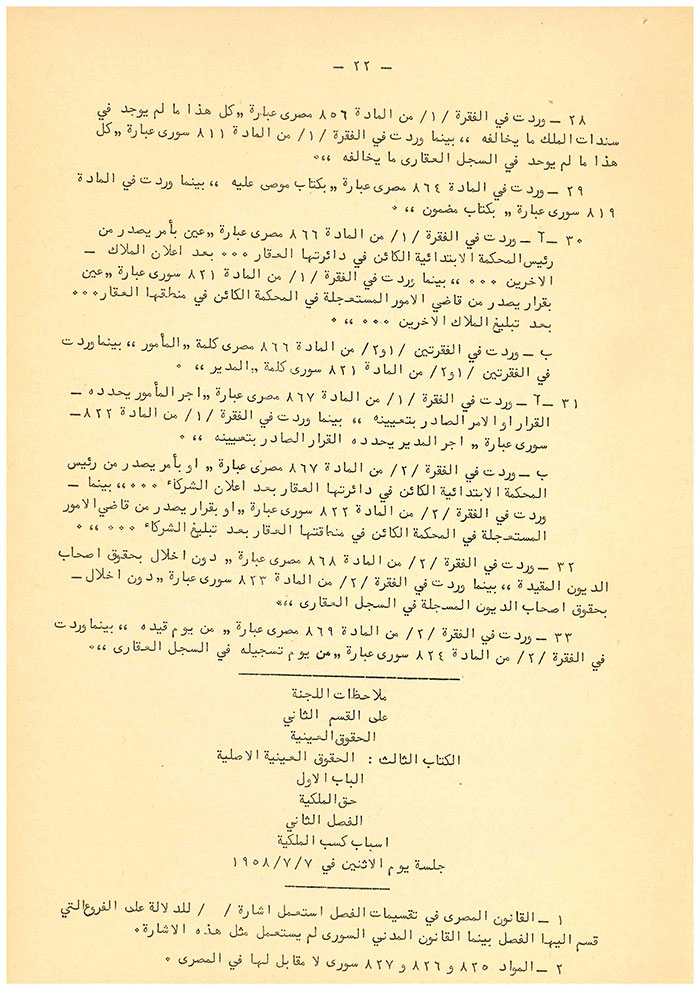 — ٢٢ —
٢٨ — وردت في الفقرة /١/ من المادة ٨٥٦ مصرى عبارة „كل هذا ما لم يوجد في
سندات الملك ما يخالفه „ بينما وردت في الفقرة /١/ من المادة ٨١١ سورى عبارة „كل
هذا ما لم يوجد في السجل العقارى ما يخالفه „٠
٢٩ — وردت في المادة ٨٦٤ مصرى عبارة „بكتاب موصى عليه „ بينما وردت في المادة
٨١٩ سورى عبارة „ بكتاب مضمون „ ٠
٣٠ — آ — وردت في الفقرة /١/ من المادة ٨٦٦ مصرى عبارة „عين بأمر يصدر من
رئيس المحكمة الابتدائية الكائن في دائرتها العقار ٠٠٠ بعد اعلان الملاك —
الاخرين ٠٠٠ „ بينما وردت في الفقرة /١/ من المادة ٨٢١ سورى عبارة „عين
بقرار يصدر من قاضي الامور المستعجلة في المحكمة الكائن في منطقتها العقار٠٠٠
بعد تبليغ الملاك الاخرين ٠٠٠ „ ٠
ب — وردت في الفقرتين /١و٢/ من المادة ٨٦٦ مصرى كلمة „المأمور „ بينما وردت
في الفقرتين /١و٢/ من المادة ٨٢١ سورى كلمة „المدير „ ٠
٣١ — آ — وردت في الفقرة /١/ من المادة ٨٦٧ مصرى عبارة „اجر المأمور يحدده —
القرار او الامر الصادر بتعيينه „ بينما وردت في الفقرة /١/ من المادة ٨٢٢ —
سورى عبارة „ اجر المدير يحدده القرار الصادر بتعيينه „ ٠
ب — وردت في الفقرة /٢/ من المادة ٨٦٧ مصرى عبارة „ او بأمر يصدر من رئيس
المحكمة الابتدائية الكائن في دائرتها العقار بعد اعلان الشركاء ٠٠٠ „ بينما —
وردت في الفقرة /٢/ من المادة ٨٢٢ سورى عبارة „او بقرار يصدر من قاضي الامور
المستعجلة في المحكمة الكائن في منطقتها العقار بعد تبليغ الشركاء ٠٠٠ „ ٠
٣٢ — وردت في الفقرة /٢/ من المادة ٨٦٨ مصرى عبارة „ دون اخلال بحقوق اصحاب
الديون المقيدة „ بينما وردت في الفقرة /٢/ من المادة ٨٢٣ سورى عبارة „دون اخلال —
بحقوق اصحاب الديون المسجلة في السجل العقارى „٠
٣٣ — وردت في الفقرة /٢/ من المادة ٨٦٩ مصرى عبارة „ من يوم قيده „ بينما وردت
في الفقرة /٢/ من المادة ٨٢٤ سورى عبارة „من يوم تسجيله في السجل العقارى „٠
ملاحظات اللجنة
على القسم الثاني
الحقوق العينية
الكتاب الثالث : الحقوق العينية الاصلية
الباب الاول
حق الملكية
الفصل الثاني
اسباب كسب الملكية
جلسة يوم الاثنين في ١٩٥٨/٧/٧
١ — القانون المصرى في تقسيمات الفصل استعمل اشارة / / للدلالة على الفروع التي
قسم اليها الفصل بينما القانون المدني السورى لم يستعمل مثل هذه الاشارة ٠
٢ — المواد ٨٢٥ و ٨٢٦ و ٨٢٧ سورى لا مقابل لها في المصرى ٠